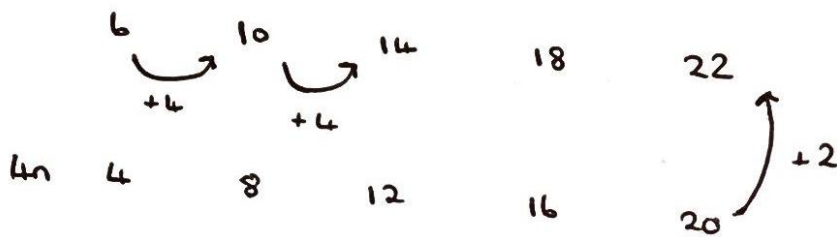 6 10 14 18 22
+4 +4
+2
4n 4 8 12 16 20